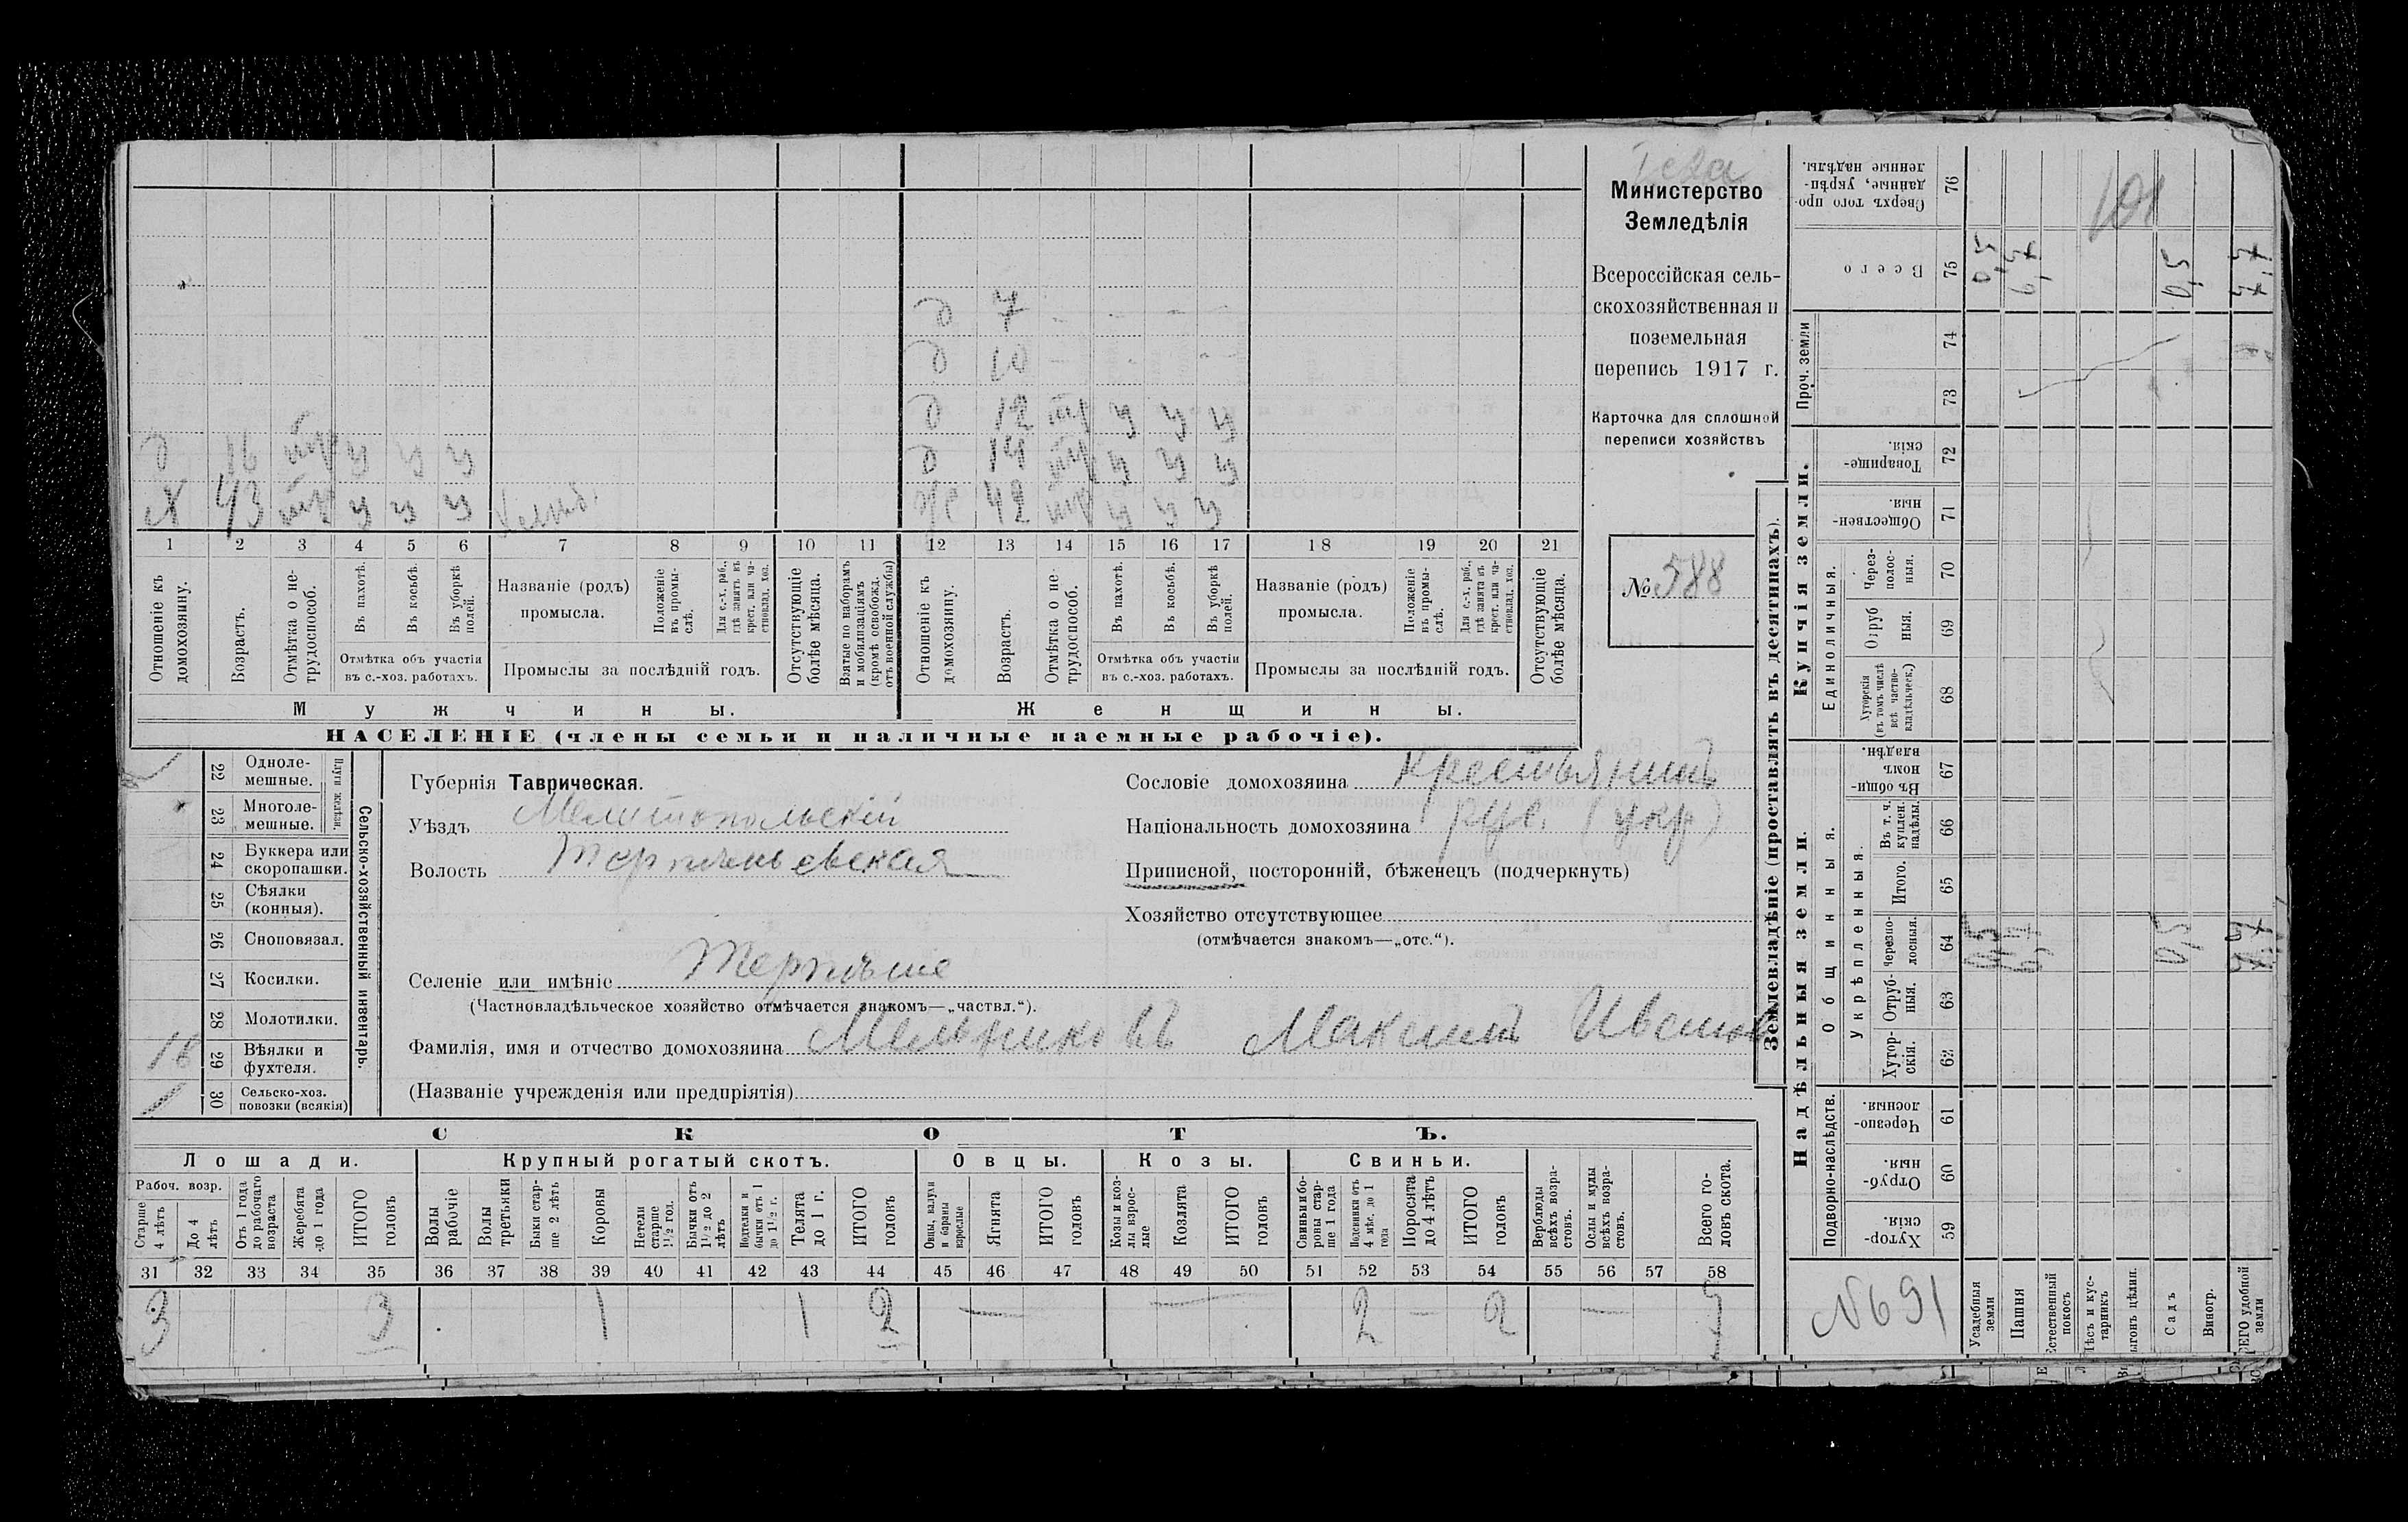 Министерство
Земледѣлія
Всероссійская сель-
скохозяйственная и
поземельная
перепись 1917 г.
Карточка для сплошной
переписи хозяйствъ
№ 588
д 7
д 10
д 12 тр у у у
д 16 тр у у у д 14 тр у у у
х 43 тр у у у ж 42 тр у у у
1 2 3 4 5 6 7 8 9 10 11 12 13 14 15 16 17 18 19 20 21
Отношеніе къ домохозяину.
Возрастъ.
Отмѣтка о не-трудоспособ.
Въ пахотѣ.
Въ косьбѣ.
Въ уборкѣ полей.
Отмѣтка объ участіи въ с.-хоз. работахъ.
Названіе (родъ) промысла.
Положеніе въ промы-слѣ.
Для с.-х. раб., гдѣ занятъ въ крест. или ча-стновлад. хоз.
Промыслы за послѣдній годъ.
Отсутствующіе болѣе мѣсяца.
Взятые по наборамъ и мобилизаціямъ (кромѣ освобожд. отъ военной службы)
Отношеніе къ домохозяину.
Возрастъ.
Отмѣтка о не-трудоспособ.
Въ пахотѣ.
Въ косьбѣ.
Въ уборкѣ полей.
Отмѣтка объ участіи въ с.-хоз. работахъ.
Названіе (родъ) промысла.
Положеніе въ промы-слѣ.
Для с.-х. раб., гдѣ занята въ крест. или ча-стновлад. хоз.
Промыслы за послѣдній годъ.
Отсутствующіе болѣе мѣсяца.
Мужчины. Женщины.
НАСЕЛЕНІЕ (члены семьи и наличные наемные рабочіе).
Сельско-хозяйственный инвентарь.
Плуги желѣзн.
22 Одноле-мешные.
23 Многоле-мешные.
24 Буккера или скоропашки.
25 Сѣялки (конныя).
26 Сноповязал.
27 Косилки.
28 Молотилки.
29 Вѣялки и фухтеля.
30 Сельско-хоз. повозки (всякія)
Губернія Таврическая.
Уѣздъ Мелитопольскій
Волость Терпеньевская
Селеніе или имѣніе Терпѣніе
(Частновладѣльческое хозяйство отмѣчается знакомъ—„частвл.“).
Фамилія, имя и отчество домохозяина Мельниковъ Максимъ Иванов
(Названіе учрежденія или предпріятія)
Сословіе домохозяина Крестьянинъ
Національность домохозяина
Приписной, посторонній, бѣженецъ (подчеркнуть)
Хозяйство отсутствующее
(отмѣчается знакомъ—„отс.“).
СКОТЪ.
Лошади. Крупный рогатый скотъ. Овцы. Козы. Свиньи.
Рабоч. возр.
Старше 4 лѣтъ
До 4 лѣтъ
Отъ 1 года до рабочаго возраста
Жеребята до 1 года
ИТОГО головъ
Волы рабочіе
Волы третьяки
Быки стар-ше 2 лѣтъ
Коровы
Нетели старше 1½ год.
Бычки отъ 1½ до 2 лѣтъ
Подтелки и бычки отъ 1 до 1½ г.
Телята до 1 г.
ИТОГО головъ
Овцы, валухи и бараны взрослые
Ягнята
ИТОГО головъ
Козы и коз-лы взрос-лые
Козлята
ИТОГО головъ
Свиньи и бо-ровы стар-ше 1 года
Подсвинки отъ 4 мѣс. до 1 года
Поросята до 4 лѣтъ
ИТОГО головъ
Верблюды всѣхъ возра-стовъ.
Ослы и мулы всѣхъ возра-стовъ.
Всего го-ловъ скота.
31 32 33 34 35 36 37 38 39 40 41 42 43 44 45 46 47 48 49 50 51 52 53 54 55 56 57 58
3 3 1 1 2 — — 2 — 2 —
Землевладѣніе (проставлять въ десятинахъ).
Надѣльныя земли. Купчія земли. Проч. земли
Подворно-наслѣдств.
Общинныя.
Укрѣпленныя.
Единоличныя.
59 Хутор-скія.
60 Отруб-ныя.
61 Черезпо-лосныя.
62 Хутор-скія.
63 Отруб-ныя.
64 Черезпо-лосныя.
65 Итого.
66 Въ т. ч. куплен. надѣлы.
67 Въ общи-номъ владѣн.
68 Хуторскія (въ томъ числѣ всѣ частно-владѣльческ.)
69 Отруб ныя.
70 Через-полос-ныя.
71 Обществен-ныя.
72 Товарище-скія.
73
74
75 Всего
76 Сверхъ того про-данные, укрѣп-ленные надѣлы.
101
№ 691
Усадебныя земли
Пашня
Естественный покосъ
Лѣсъ и кус-тарникъ
ыгонъ цѣлин.
Садъ
Виногр.
ВСЕГО удобной земли